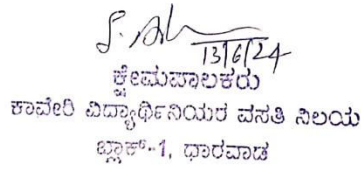 13/6/24
ಕ್ಷೇಮಪಾಲಕರು
ಕಾವೇರಿ ವಿದ್ಯಾರ್ಥಿನಿಯರ ವಸತಿ ನಿಲಯ
ಬ್ಲಾಕ್-1, ಧಾರವಾಡ